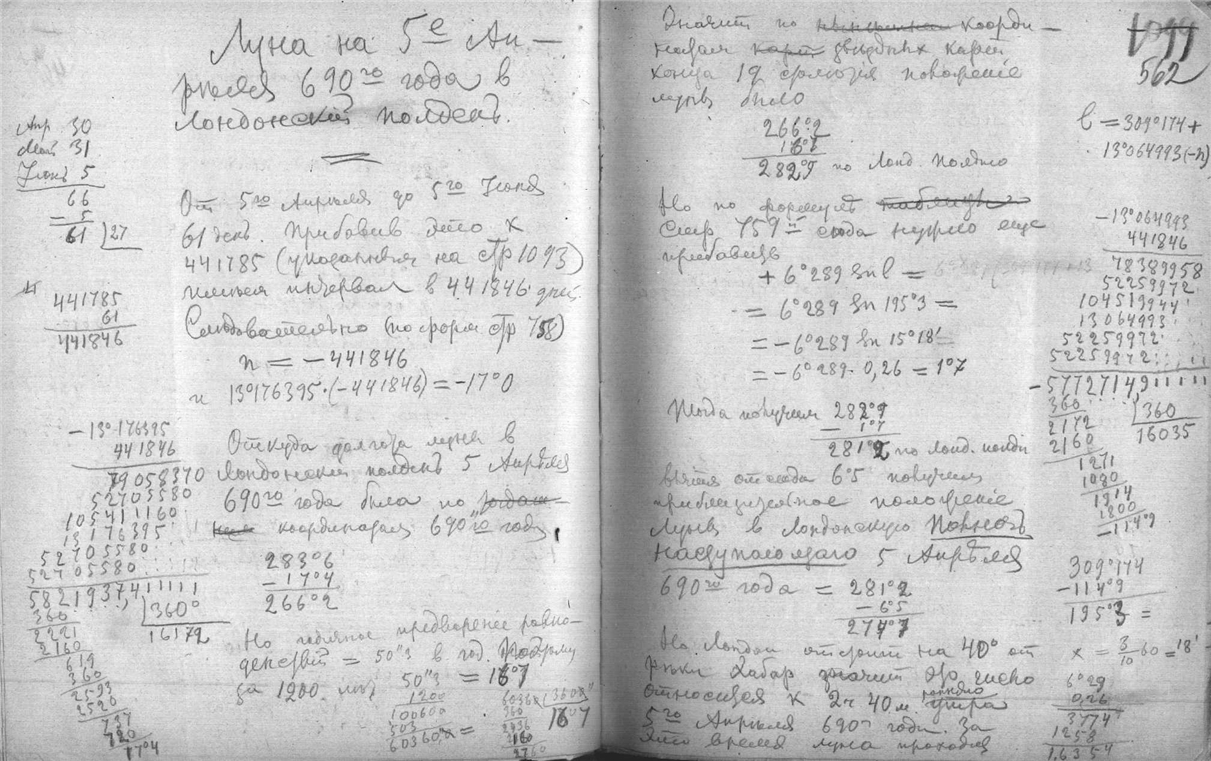 Луна на 5е Ап-
рѣля 690го года в
Лондонский полдень.
Апр 30
Май 31
Июнь 5
66
= 5
61 27
441785
61
441846
От 5го Апрѣля до 5го Июня
61 день. Прибавив это к
441785 (указанныя на стр 1093)
имѣем интервал в 441846 дней.
Слѣдовательно (по форм стр 758)
n = - 441846
и 13°176395·(-441846) = -17°0
-13°176395
441846
79058370
52705580
105411160
13176395
52705580
52705580
58219374
360 360°
2221 16172
2160
619
360
2593
2520
727
720
17°4
Откуда долгота луны в
Лондонский полдень 5 Апрѣля
690го года была по
координатам 690го году
283°6
- 17°4
266°2
Но годичное предварение равно-
денствий = 50"3 в год. Поэтому
за 1200 лѣт 50"3 = 16°7
1200
100600
503
60360,0 =
60360 3600"
360 16°7
2436
2160
2760
Значит по коорди-
натам звѣздных карт
конца 19 столѣтія положеніе
луны было
266°2
16°7
282°9 по Лонд полдню
Но по формулѣ
стр 759й сюда нужно еще
прибавить
+ 6°289 Sn l =
= 6°289 Sn 195°3 =
= - 6°289 Sn 15°18' =
= - 6°289· 0,26 = 1°7
Тогда получим 282°9
- 1°7
281°2 по Лонд. полдн
Вычтя отсюда 6°5 получим
приблизительное положеніе
Луны в Лондонскую Полноч
наступающаго 5 Апрѣля
690го года = 281°2
- 6°5
274°7
Но Лондон отстоит на 40° от
рѣки Хабар значит это число
относится к 2ч 40м утра
5го Апрѣля 690 года. За
это время луна проходит
1099
562
l = 309°174 +
13°064993(-n)
-13°064993
441846
78389958
52259972
104519944
13064993
52259972
52259972
-57727149
360 360
2172 16035
2160
1271
1080
1914
1800
-114°9
309°174
-114°9
195°3 =
x = 3/10 60 = 18'
6°29
0,26
3774
1258
1,6354